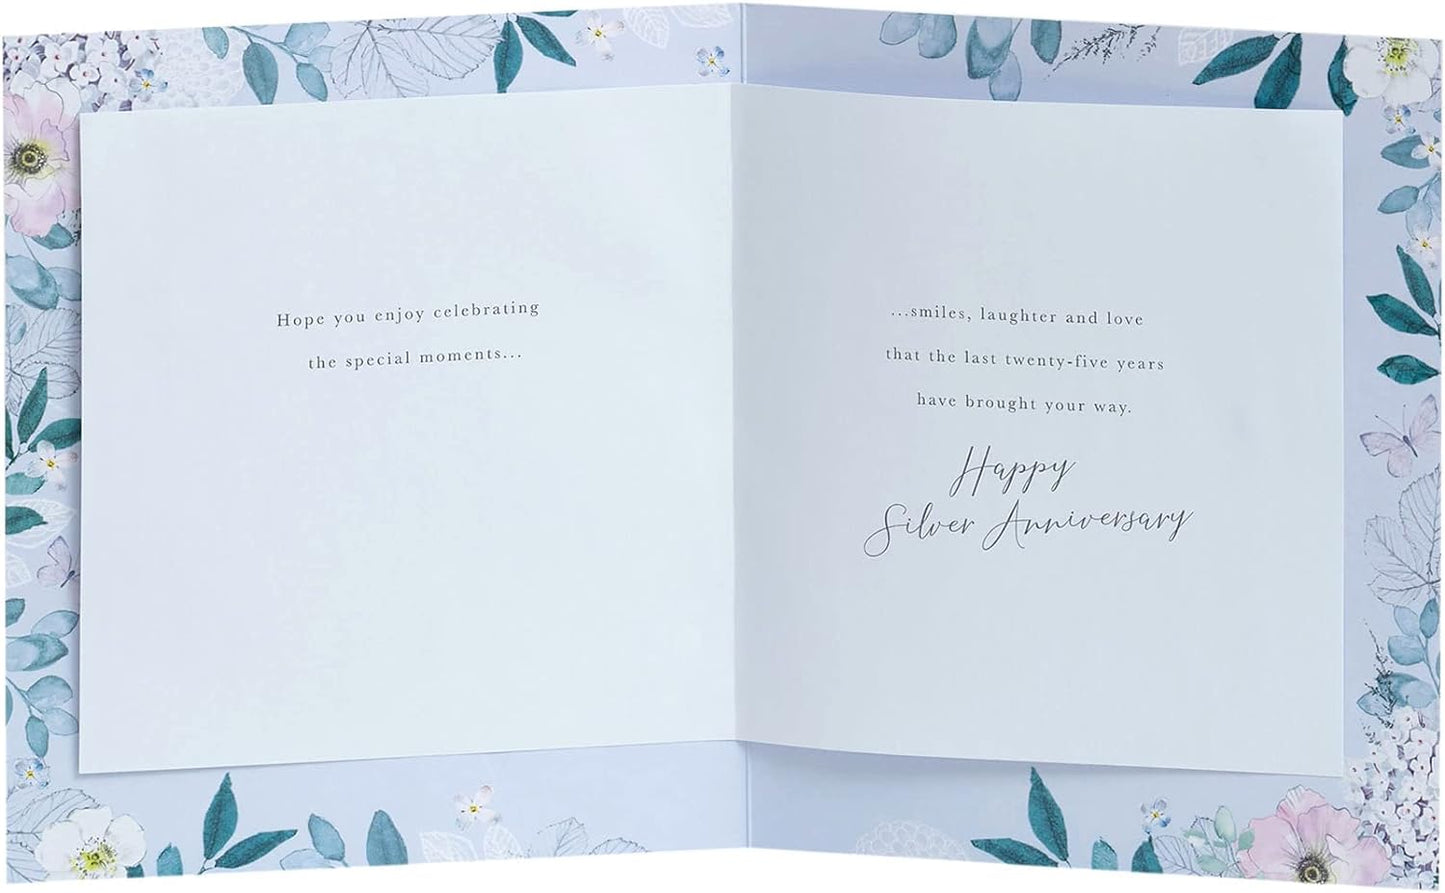 Hope you enjoy celebrating
the special moments...
...smiles, laughter and love
that the last twenty-five years
have brought your way.
Happy
Silver Anniversary